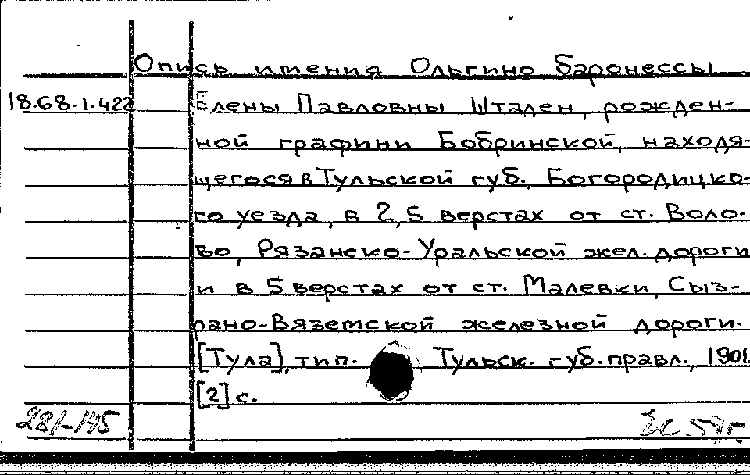 Опись имения Ольгино Баронессы
18.68.1.422 Елены Павловны Штален, рожден-
ной графини Бобринской, находя-
щегося в Тульской губ. Богородицко-
го уезда, в 2,5 верстах от ст. Воло-
во, Рязанско-Уральской жел. дороги
и в 5 верстах от ст. Малевки, Сыз-
рано-Вяземской железной дороги.
[Тула], тип. Тульск. губ. правл., 1901.
[2] с.